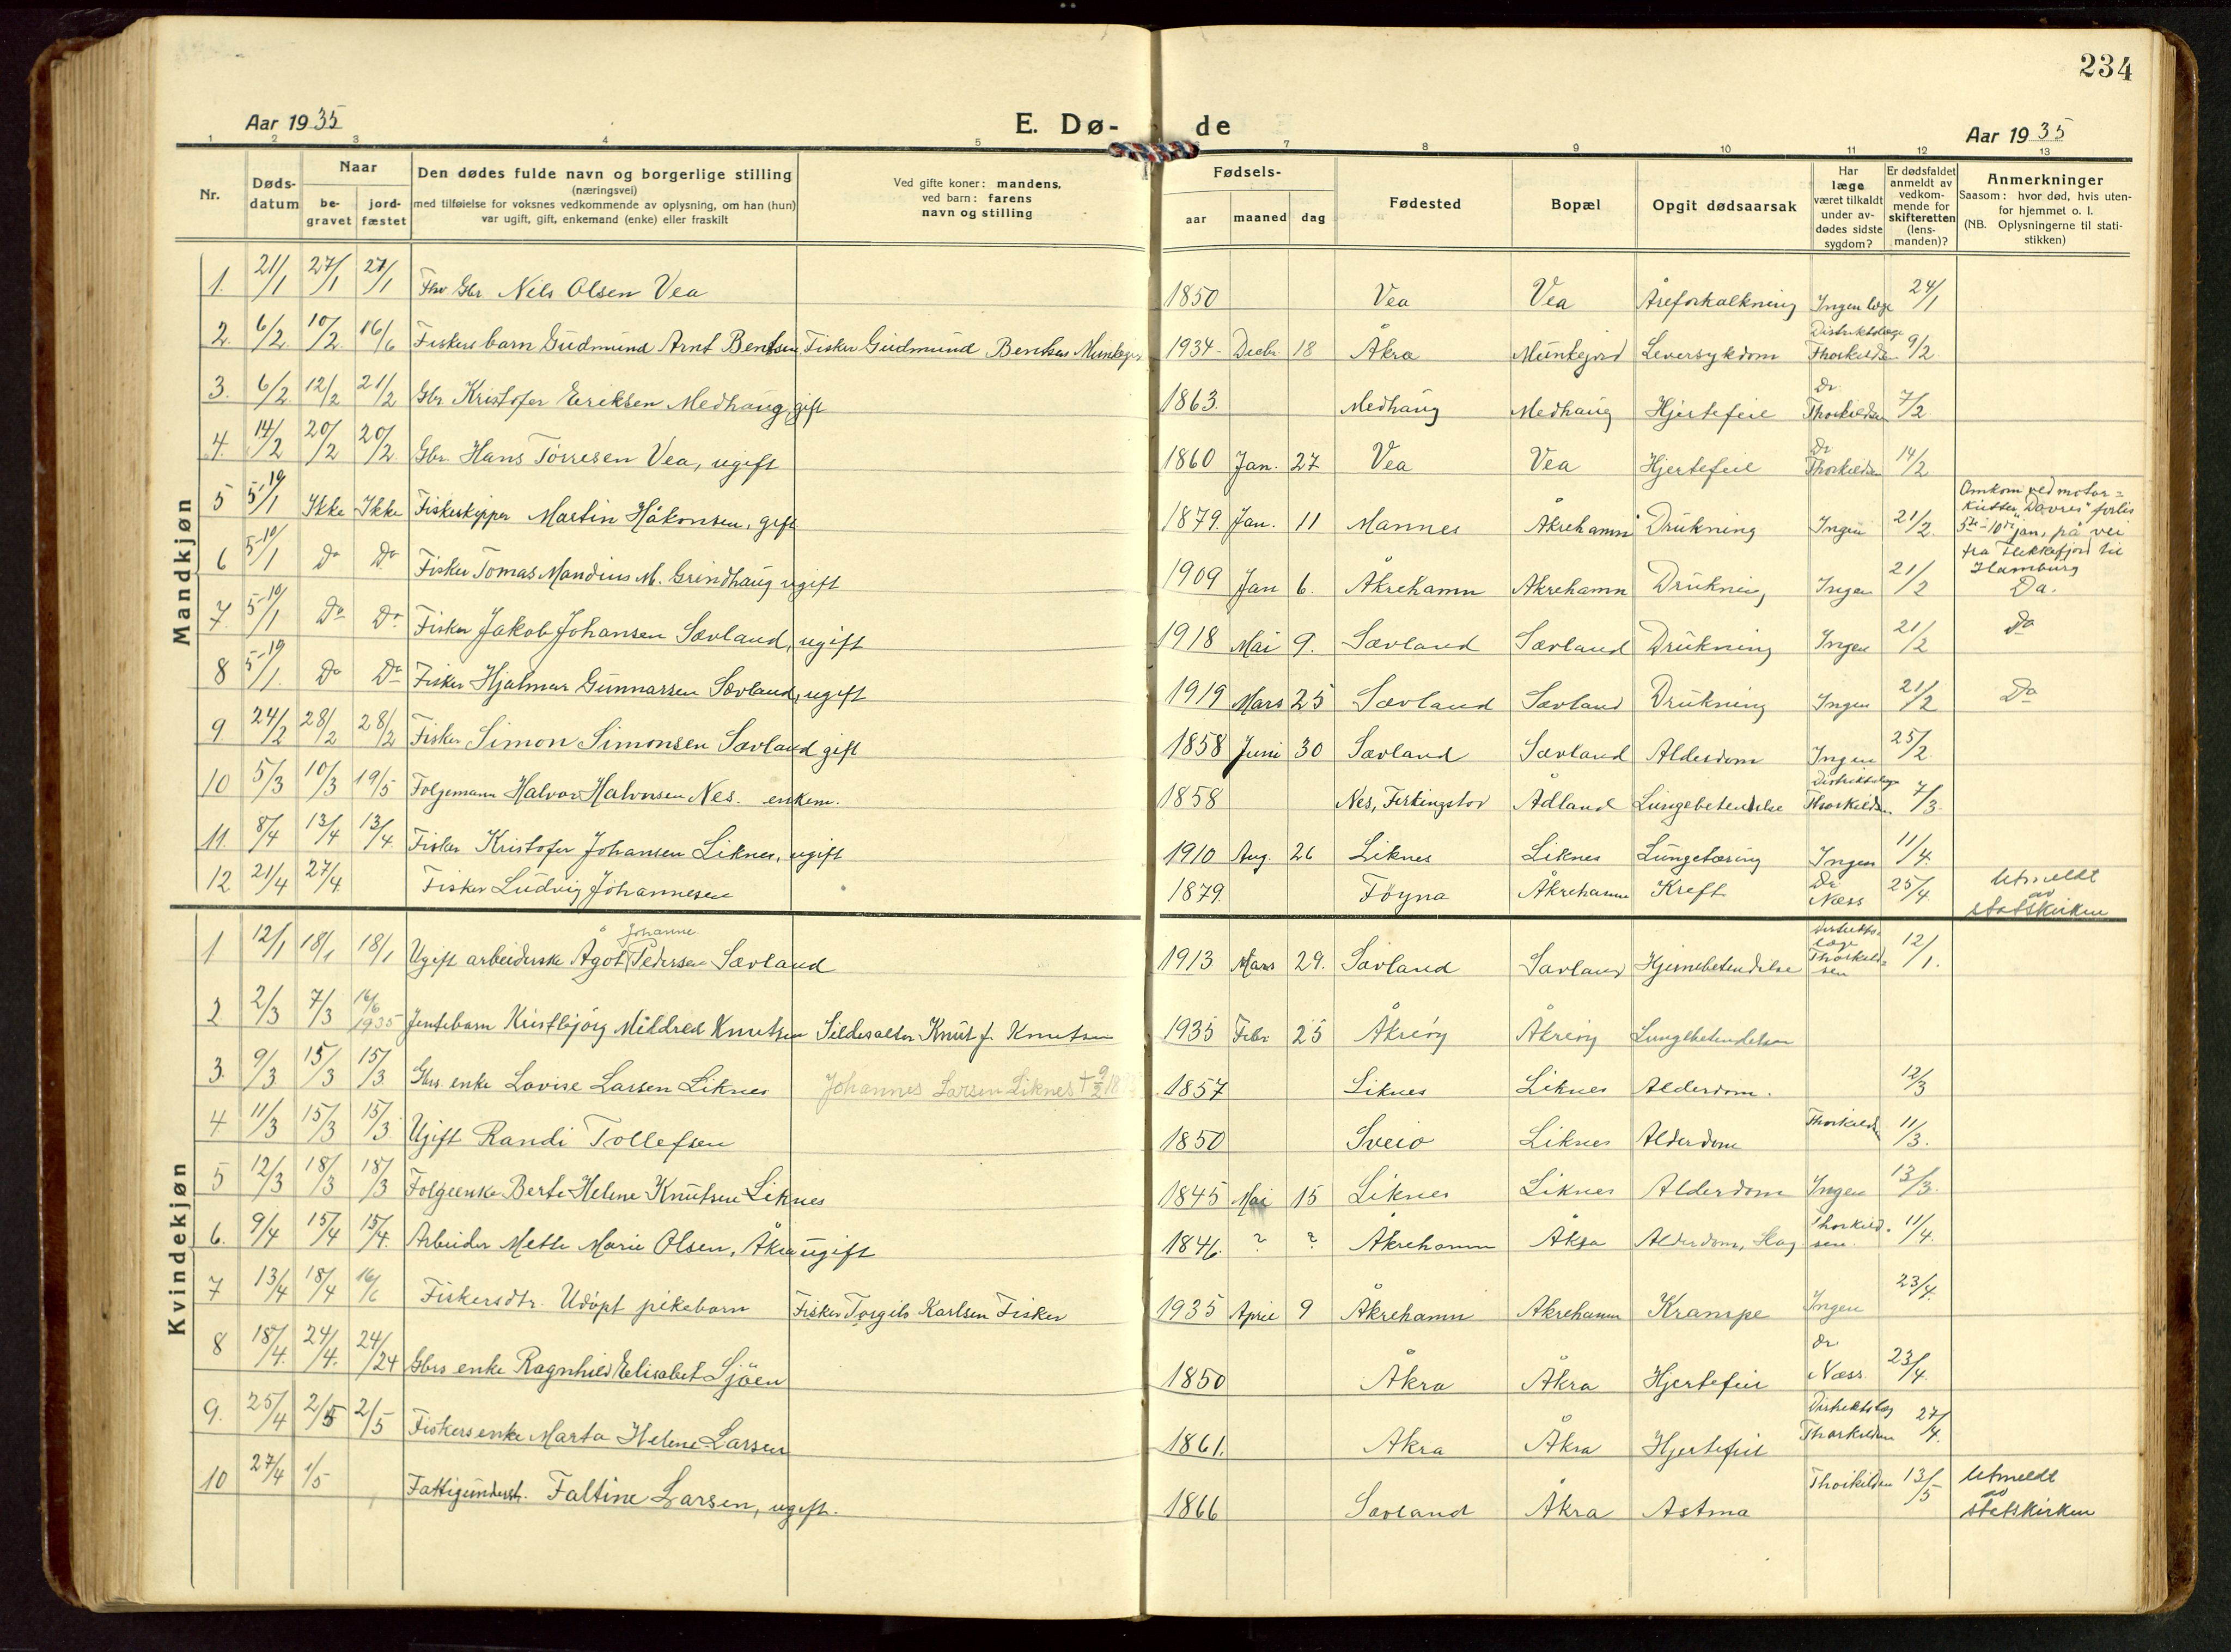 234
Aar 1935
E. Dø- de
Aar 1935
1 2 3 4 5 7 8 9 10 11 12 13
Nr.
Døds-
datum
Naar
be-
gravet
jord-
fæstet
Den dødes fulde navn og borgerlige stilling
(næringsvei)
med tilføielse for voksnes vedkommende av oplysning, om han (hun)
var ugift, gift, enkemand (enke) eller fraskilt
Ved gifte koner: mandens,
ved barn: farens
navn og stilling
Fødsels-
aar maaned dag
Fødested
Bopæl
Opgit dødsaarsak
Har
læge
været tilkaldt
under av-
dødes sidste
sygdom?
Er dødsfaldet
anmeldt av
vedkom-
mende for
skifteretten
(lens-
manden)?
Anmerkninger
Saasom: hvor død, hvis uten-
for hjemmet o. l.
(NB. Oplysningerne til stati-
stikken)
Mandkjøn
1. 21/1 27/1 27/1 Fhv. Gbr. Nels Olsen Vea 1850 Vea Vea Åreforkalkning Ingen læge 24/1
2. 6/2 10/2 16/6 Fiskers barn Gudmund Arnt Bentsen Fisker Gudmund Bentsen Munkejord 1934 Decbr 18 Åkra Munkejord Leversykdom Distriktslæge Thorkildsen 9/2
3. 6/2 12/2 21/2 Gbr. Kristofer Eriksen Medhaug, gift 1863. Medhaug Medhaug Hjertefeil Dr Thorkildsen 7/2
4. 14/2 20/2 20/2 Gbr. Hans Torresen Vea, ugift 1860 Jan. 27 Vea Vea Hjertefeil Dr Thorkildsen 14/2
5 5-10/1 Ikke Ikke Fiskeskipper Martin Håkonsen, gift 1879. Jan. 11 Mannes Åkrehamn Drukning Ingen 21/2 Omkom ved motor=
kutter "Davres" forlis
5te-10de jan, på vei
fra Flekkefjord til
Hamburg
6 5-10/1 Do Do Fisker Tomas Mandius M. Grindhaug ugift 1909 Jan 6. Åkrehamn Åkrehamn Drukning Ingen 21/2 Do.
7. 5-10/1 Do Do Fisker Jakob Johansen Sævland, ugift 1918 Mai 9. Sævland Sævland Drukning Ingen 21/2 Do
8 5-10/1. Do Do Fisker Hjalmar Gunnarsen Sævland, ugift 1919 Mars 25 Sævland Sævland Drukning Ingen 21/2 Do
9 24/2 28/2 28/2 Fisker Simon Simonsen Sævland gift 1858 Juni 30 Sævland Sævland Alderdom Ingen 25/2
10 5/3 10/3 19/5 Folgemann Halvor Halvorsen Nes. enkem. 1858 Nes, Ferkingstad Ådland Lungebetendelse Distriktslæge Thorkildsen 7/3.
11. 8/4 13/4 13/4. Fisker Kristofer Johansen Liknes, ugift 1910 Aug. 26 Liknes Liknes Lungetæring Ingen 11/4
12 21/4 27/4 Fisker Ludvig Johannesen 1879. Föyna Åkrehamn Kreft Dr Næss 25/4. Utmeldt
av
statskirken
Kvindekjøn
Johanne
1 12/1 18/1 18/1 Ugift arbeiderske Ågot Pedersen Sævland 1913 Mars 29. Sævland Sævland Hjernebetendelse Distriktslæge Thorkildsen 12/1.
2 2/3 7/3 16/6 1935 Jentebarn Kristbjörg Mildred Knutsen Sildesalter Knut J. Knutsen 1935 Febr 25 Åkreöy Åkreöy Lungebetendelse
3. 9/3 15/3 15/3 Gbrs. enke Lovise Larsen Liknes Johannes Larsen Liknes † 9/2 18 1857 Liknes Liknes Alderdom. 12/3
4 11/3 15/3 15/3. Ugift Randi Tollefsen 1850 Sveio Liknes Alderdom Thorkildsen 11/3.
5 12/3 18/3 18/3 Folgeenke Berte Helene Knutsen Liknes 1845 Mai 15 Liknes Liknes Alderdom Ingen 13/3.
6. 9/4 15/4 15/4. Arbeider Mette Marie Olsen, Åkra ugift 1846. ? ? Åkrehamn Åkra Alderdom, Slag Thorkildsen. 11/4.
7 13/4 18/4 16/6 Fiskersdtr. Udöpt pikebarn Fisker Torgils Karlsen Fisker 1935 April 9 Åkrehamn Åkrehamn Krampe Ingen 23/4.
8 18/4. 24/4. 24/24 Gbrs enke Ragnhild Elisabet Sjöen 1850 Åkra Åkra Hjertefeil Dr Næss 23/4.
9. 25/4 2/5 2/5 Fiskersenke Marta Helene Larsen 1861. Åkra Åkra Hjertefeil Distriktslæg Thorkildsen 27/4.
10 27/4 1/5 Fattigunderst. Faltine Larsen, ugift. 1866 Sævland Åkra Astma Thorkildsen 13/5 Utmeldt
av
statskirken